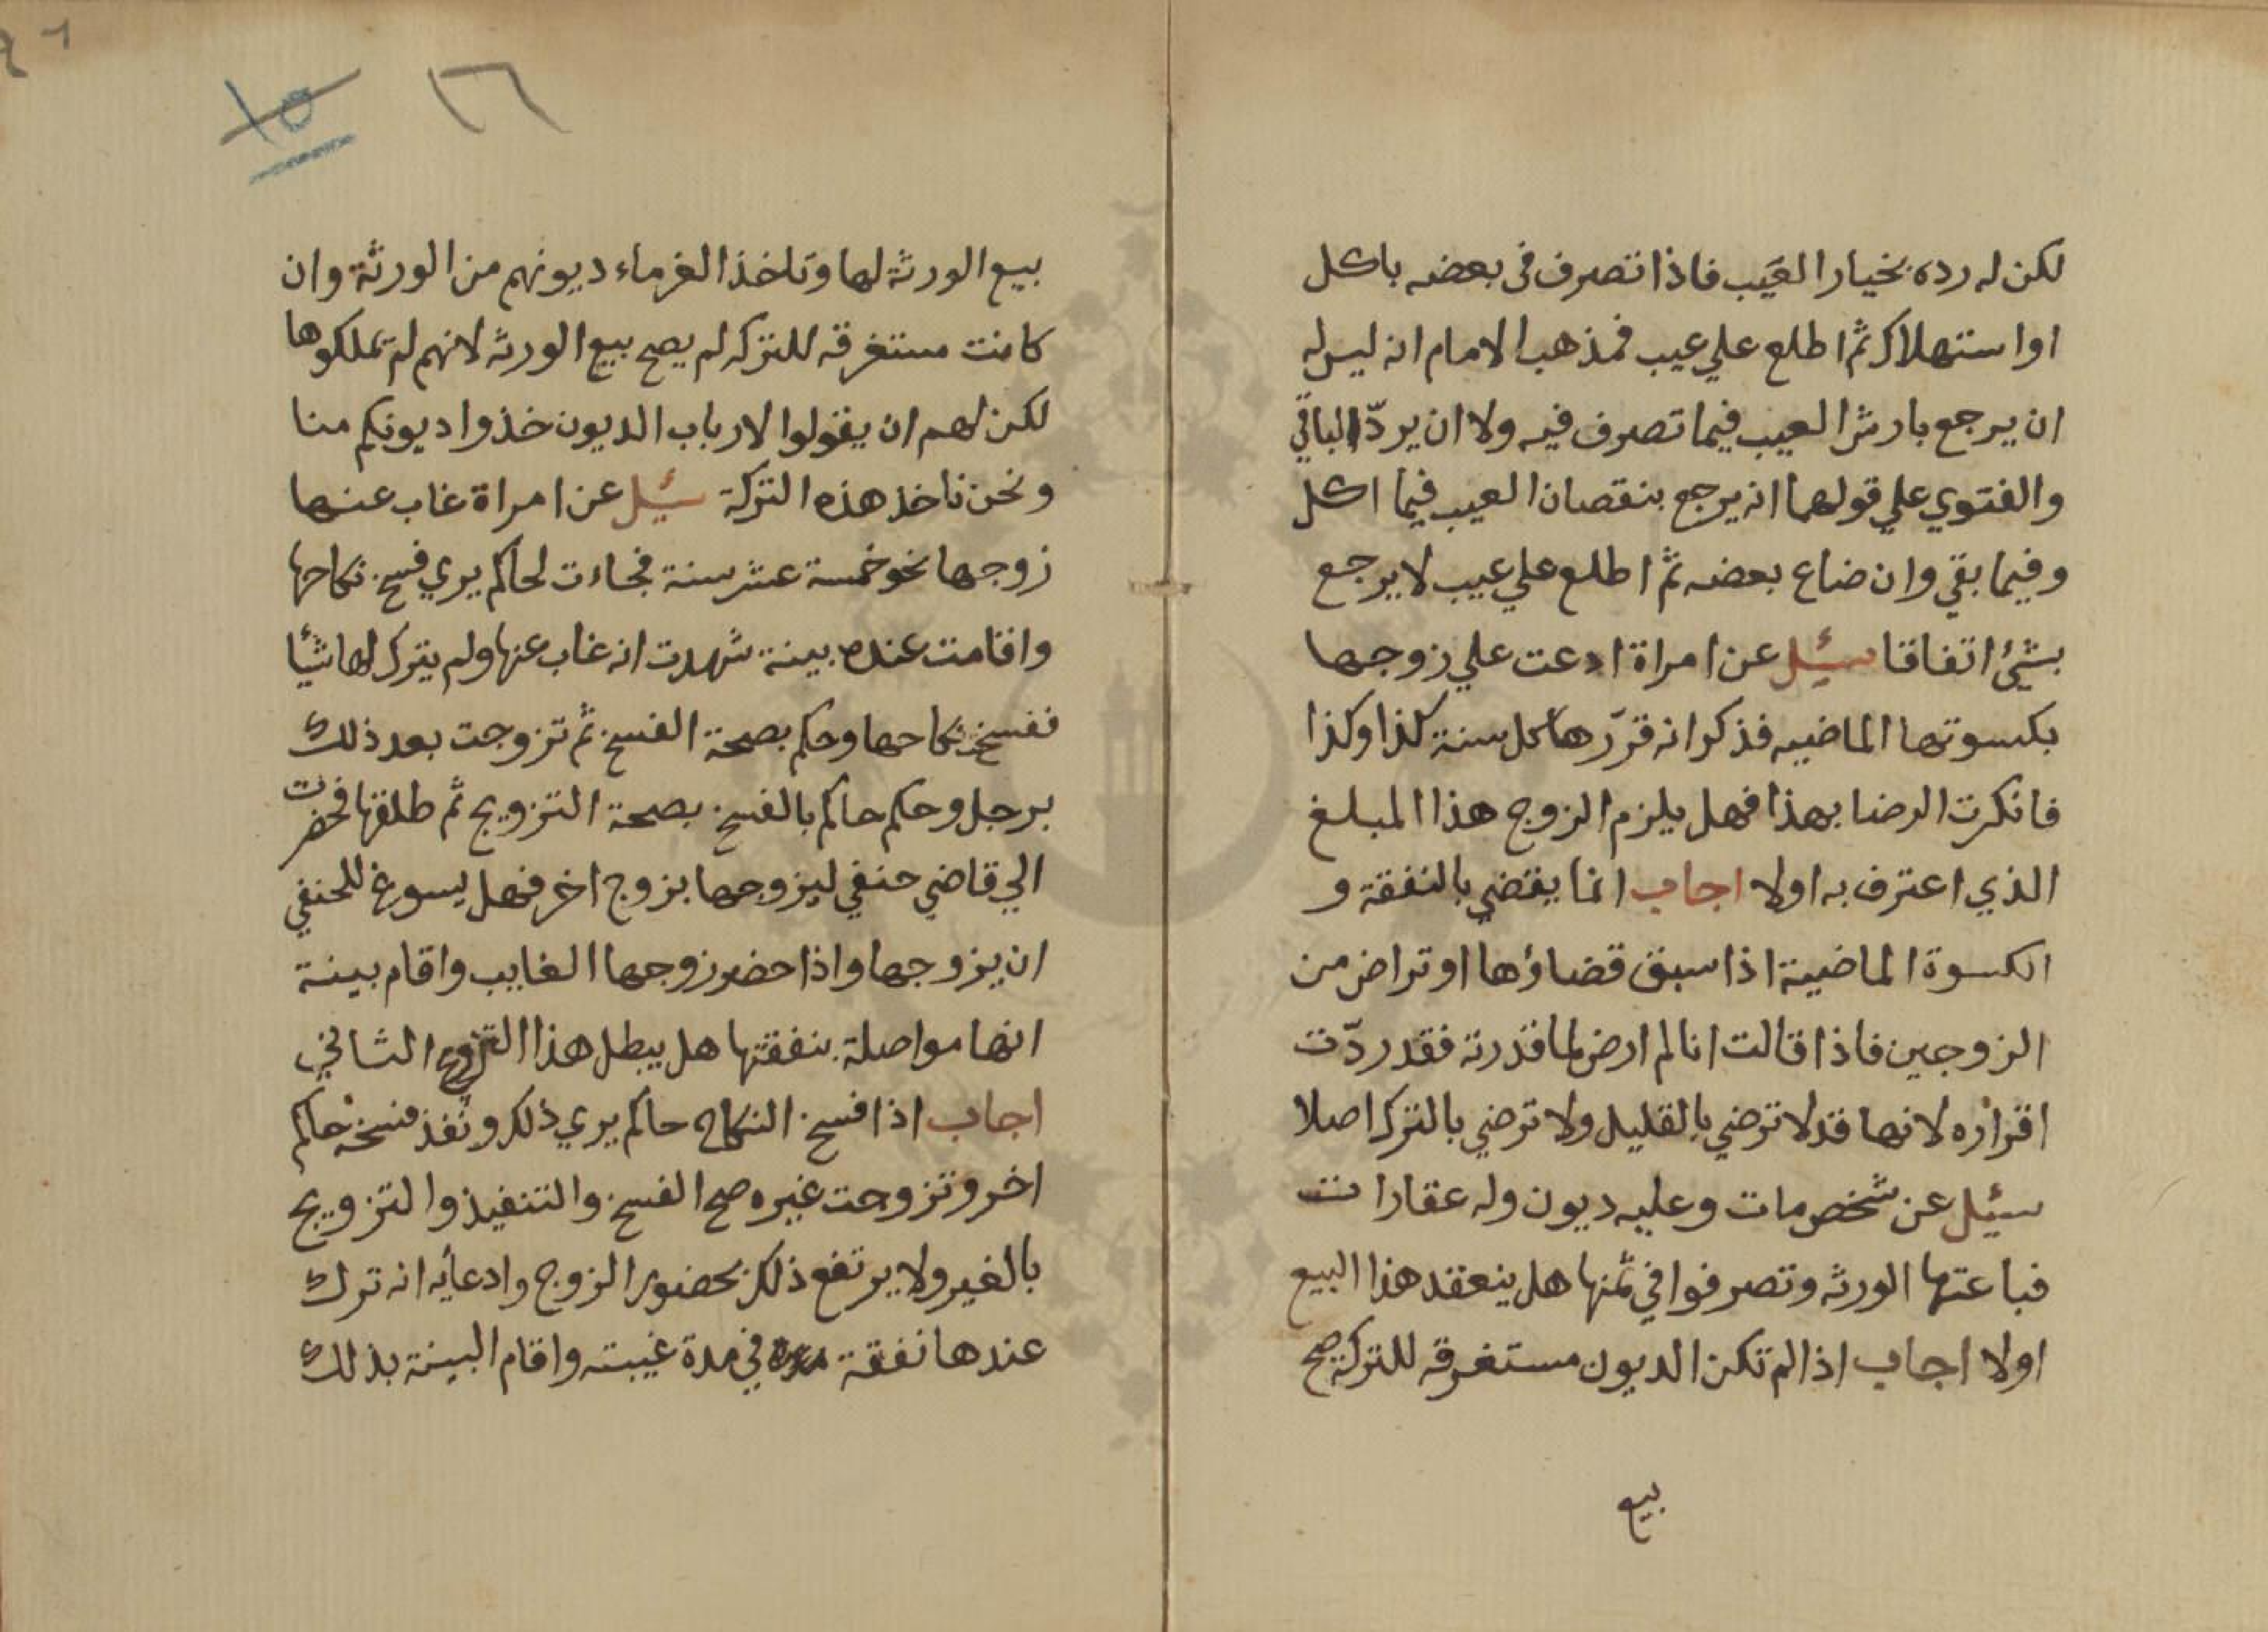 لكن له رده بخيار العيب فاذا تصرف فى بعضه باكل
او استهلاك ثم اطلع علي عيب فمذهب الامام انه ليس له
ان يرجع بارش العيب فيما تصرف فيه ولا ان يردّ الباقي
والفتوي علي قولهما انه يرجع بنقصان العيب فيما اكل
وفيما بقي وان ضاع بعضه ثم اطلع علي عيب لا يرجع
بشيء اتفاقا سئيل عن امراة ادعت علي زوجها
بكسوتها الماضيه فذكر انه قرّرها كل سنة كذا وكذا
فانكرت الرضا بهذا فهل يلزم الزوج هذا المبلغ
الذي اعترف به اولا اجاب انما يقضي بالنفقة و
الكسوة الماضية اذا سبق قضاؤها او تراض من
الزوجين فاذا قالت انا لم ارض لما قدرته فقد ردّت
اقراره لانها قد لا ترضي بالقليل ولا ترضي بالترك اصلا
سئيل عن شخص مات وعليه ديون وله عقارات
فباعتها الورثه وتصرفوا في ثمنها هل ينعقد هذا البيع
اولا اجاب اذا لم تكن الديون مستغرقه للتركة صح
بيع
١٥ ١٦
بيع الورثة لها وتاخذ الغرماء ديونهم من الورثة وان
كانت مستغرقه للتركه لم يصح بيع الورثه لانهم لم يملكوها
لكن لهم ان يقولوا لارباب الديون خذوا ديونكم منا
ونحن ناخذ هذه التركة سئيل عن امراة غاب عنها
زوجها نحو خمسة عشر سنة فجاءت لحاكم يري فسخ نكاحها
واقامت عنده بينة شهدت انه غاب عنها ولم يترك لها شيأ
ففسخ نكاحها وحكم بصحة الفسخ ثم تزوجت بعد ذلك
برجل وحكم حاكم بالفسخ بصحة التزويج ثم طلقها فحضرت
الي قاضي حنفي ليزوجها بزوج اخر فهل يسوغ للحنفي
ان يزوجها واذا حضر زوجها الغايب واقام بينة
انها مواصلة بنفقتها هل يبطل هذا التزويج الثاني
اجاب اذا فسخ النكاح حاكم يري ذلك ونفذ فسخه حاكم
اخر وتزوجت غيره صح الفسخ والتنفيذ والتزويج
بالغير ولا يرتفع ذلك بحضور الزوج وادعايه انه ترك
عندها نفقة في مدة غيبته واقام البينة بذلك